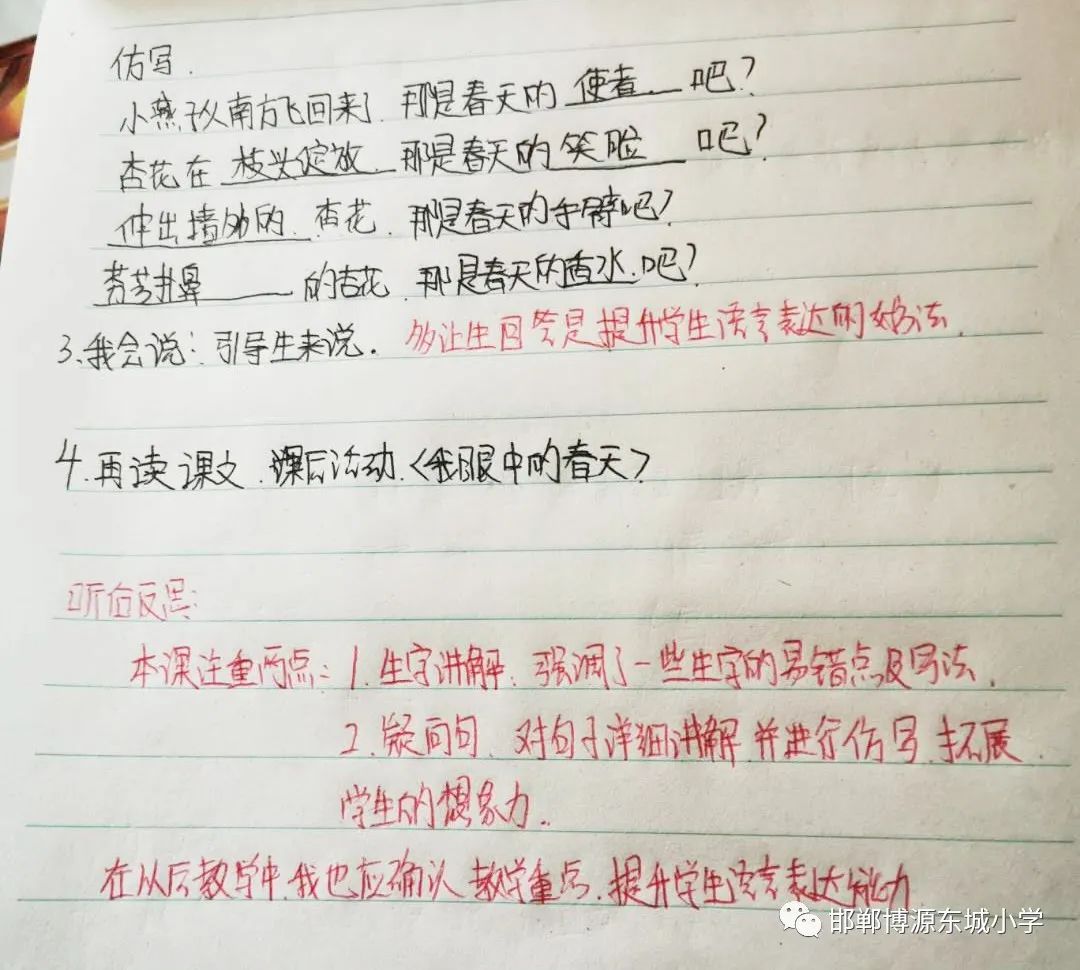 仿写.
小燕子从南方飞回来了.那是春天的 使者 吧?
杏花在 枝头绽放 那是春天的 笑脸 吧?
伸出墙外的 杏花.那是春天的手臂吧?
芬芳扑鼻 的杏花.那是春天的香水.吧?
3.我会说:引导生来说. 多让生回答是提升学生语言表达的好办法.
4.再读课文.课后活动.〈我眼中的春天〉
听后反思:
本课注重两点:1.生字讲解.强调了一些生字的易错点及写法.
2.疑问句.对句子详细讲解.并进行仿写.拓展
学生的想象力.
在以后教学中.我也应确认教学重点.提升学生语言表达能力
邯郸博源东城小学